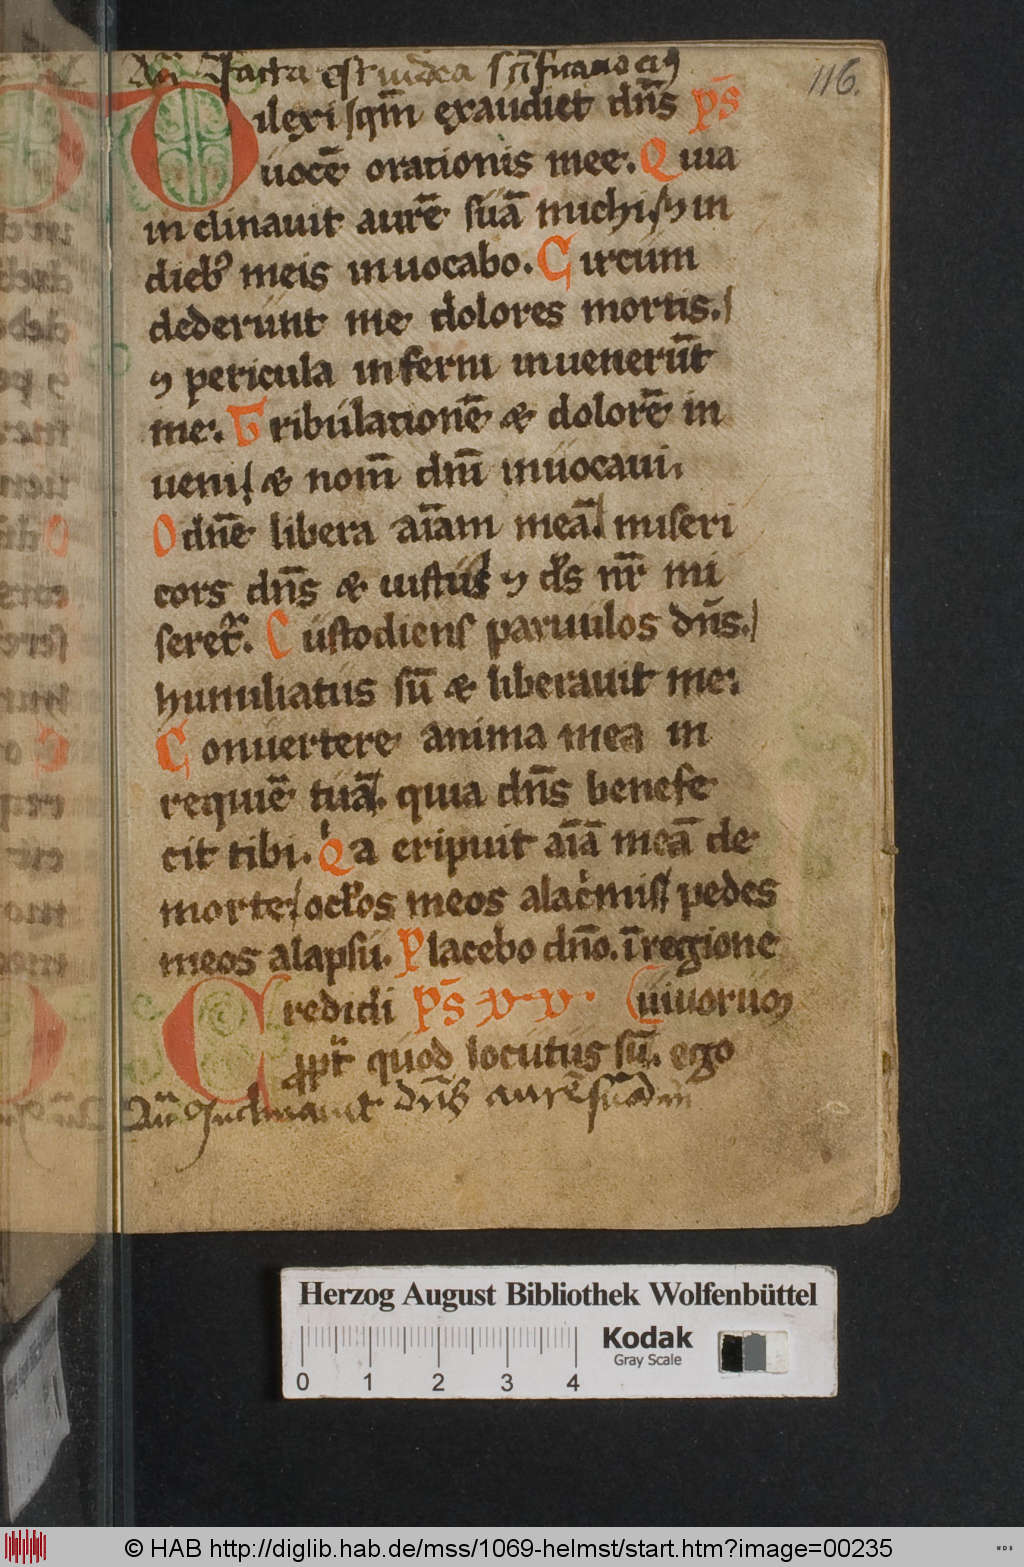 An̄ Facta est iudea sc̄ificatio eiꝰ
116.
Dilexi qm̄ exaudiet dn̄s ps̄
uocē orationis mee. Quia
inclinauit aurē suā michi ⁊ in
diebꝰ meis inuocabo. Circum
dederunt me dolores mortis.
⁊ pericula inferni inuenerūt
me. Tribulationē & dolorē in
ueni & nom̄ dn̄i inuocaui.
O dn̄e libera aīam meā miseri
cors dn̄s & iustus ⁊ ds̄ nr̄ mi
seret᷑. Custodiens paruulos dn̄s.
humiliatus sū & liberauit me.
Conuertere anima mea in
requiē tuā. quia dn̄s benefe
cit tibi. Qͥa eripuit aīā meā de
morte ocl̄os meos alac͛mis pedes
meos alapsu. Placebo dn̄o. ī regione
Credidi ps̄ xv. uiuorum
ꝓpt̄ quod locutus sū. ego
An̄ Inclinauit dn̄s aurē suā m
Herzog August Bibliothek Wolfenbüttel
Kodak
Gray Scale
0 1 2 3 4
© HAB http://diglib.hab.de/mss/1069-helmst/start.htm?image=00235